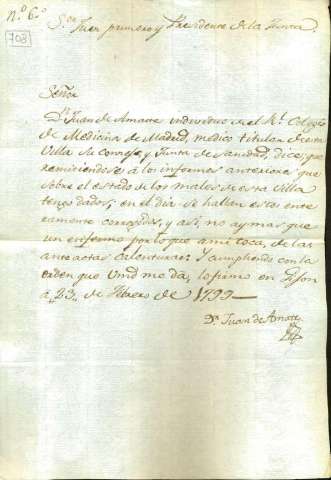 n.º 6.º
703
S.or Juez primero y Presidente de la Junta
Señor
D.n Juan de Amatte individuo de el R.l Colegio
de Medicina de Madrid, medico titular de esta
Villa su Concejo y Junta de Sanidad, dice, que
remitiendose à los informes anteriores que
sobre el estado de los males de esta villa
tengo dados, en el dia se hallan estos ente
ramente corregidos, y asi no ay mas que
un enfermo por lo que a mi toca, de las
calenturas: Y cumpliendo con la
orden que Vmd me da, lo firmo en Gijon
à 23,, de febrero de 1799
D.n Juan de Amatte